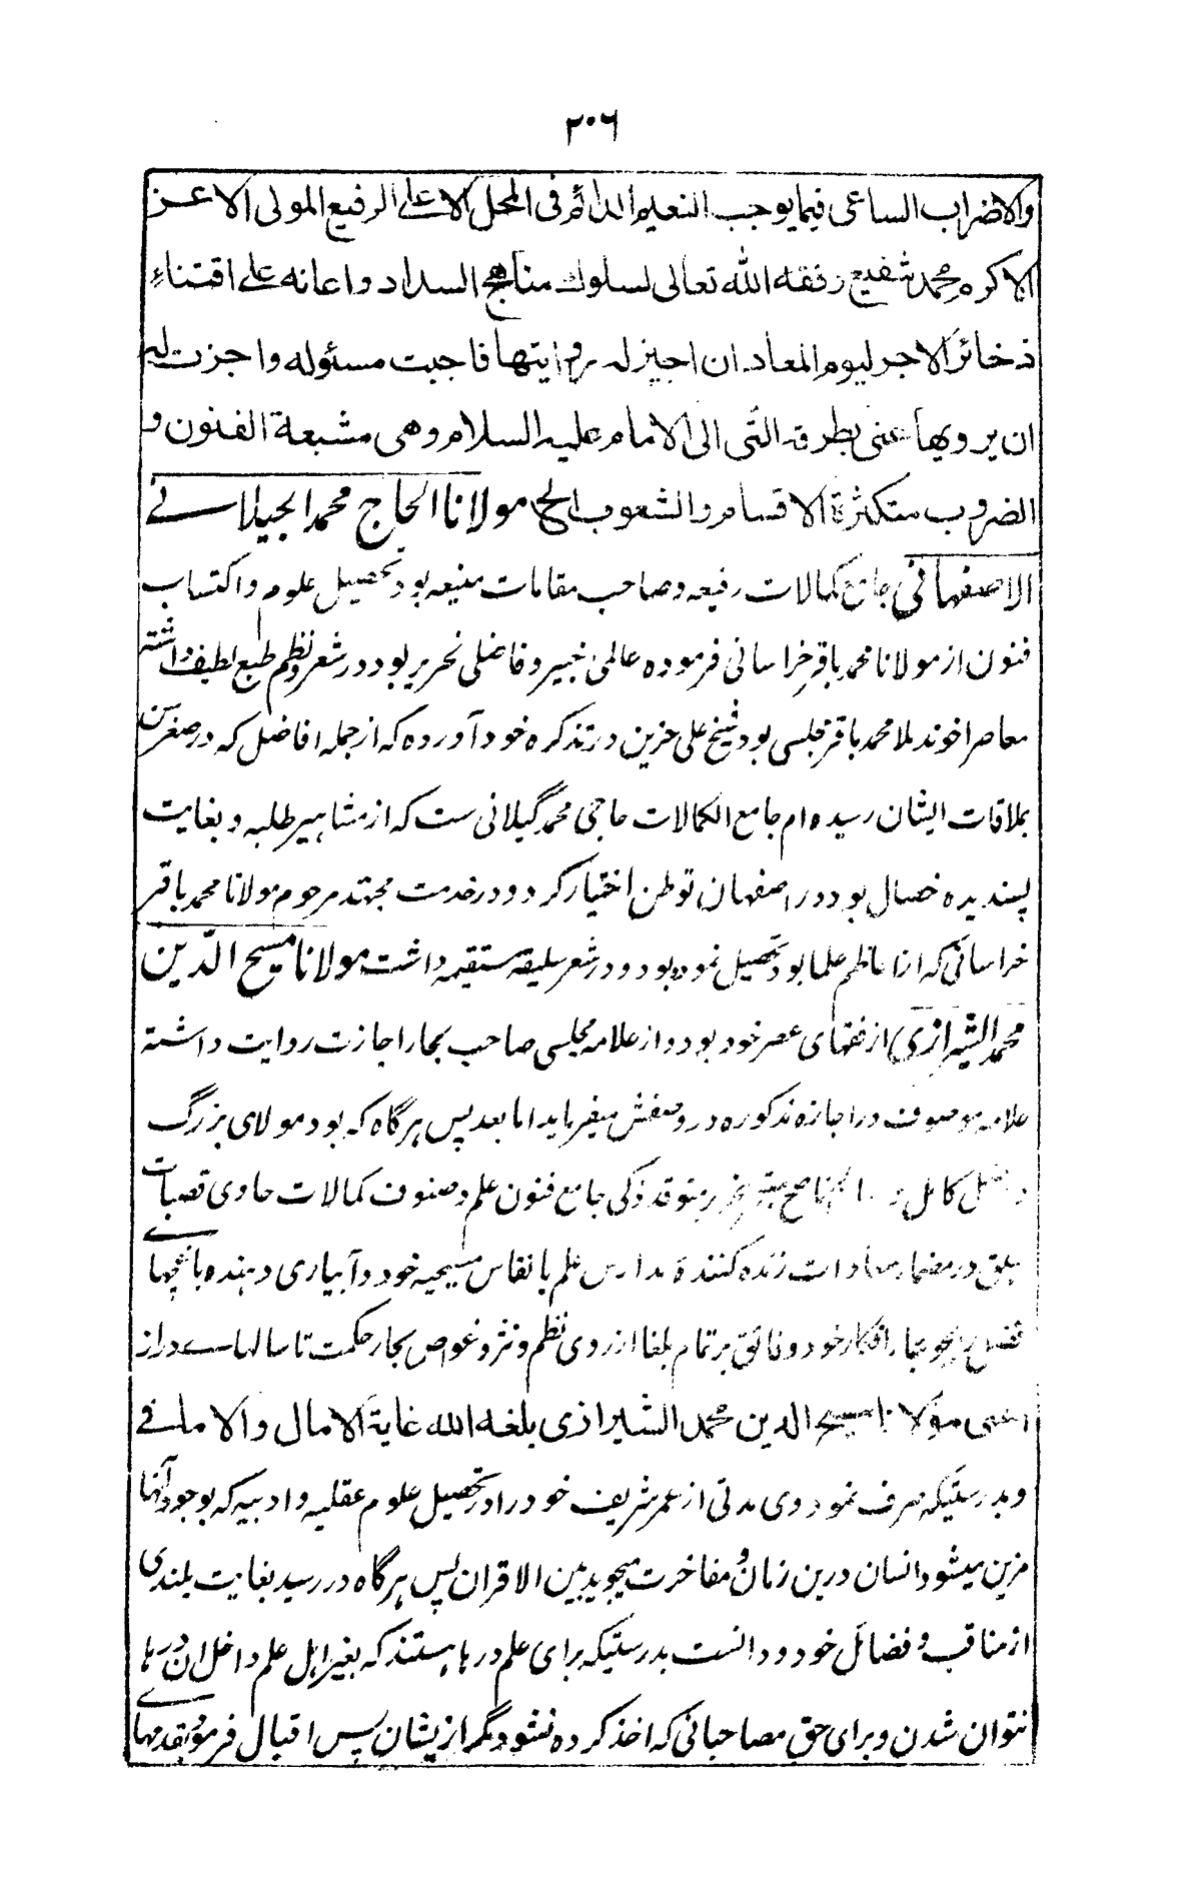 ۲۰۶
والاضراب الساعی فیما یوجب النعیم الدائم فی المحل الاعلی الرفیع المولی الاعز
الاکرم محمد شفیع وفقه الله تعالی لسلوک مناهج السداد واعانه علی اقتناء
ذخائر الاجر لیوم المعاد ان اجیز له روایتها فاجبت مسئوله واجزت له
ان یرویها عنی بطرقه التی الی الامام علیه السلام وهی مشبعة الفنون و
الضروب متکثرة الاقسام والشعوب الخ مولانا الحاج محمد الجیلانی
الاصفهانی جامع کمالات رفیعه وصاحب مقامات منیعه بود تحصیل علوم واکتساب
فنون از مولانا محمد باقر خراسانی فرموده عالمی خبیر وفاضلی نحریر بود در شعر ونظم طبع لطیف داشته
معاصر اخوند ملا محمد باقر مجلسی بود شیخ علی حزین در تذکره خود آورده که از جمله افاضل که در صغر سن
بملاقات ایشان رسیده ام جامع الکمالات حاجی محمد گیلانی ست که از مشاهیر طلبه وبغایت
پسندیده خصال بود در اصفهان توطن اختیار کرد ودر خدمت مجتهد مرحوم مولانا محمد باقر
خراسانی که از اعاظم علما بود تحصیل نموده بود ودر شعر سلیقه مستقیمه داشت مولانا مسیح الدین
محمد الشیرازی از فقهای عصر خود بود واز علامه مجلسی صاحب بحار اجازت روایت داشته
علامه موصوف در اجازه مذکوره در وصفش میفرماید اما بعد پس هرگاه که بود مولای بزرگ
وفاضل کامل متوقد ذکی جامع فنون علم وصنوف کمالات حاوی قصبات
سبق در مضمار سعادات زنده کننده مدارس علم بانفاس مسیحیه خود وآبیاری دهنده باغچهای
فضل افکار خود وفائق بر تمام بلغا از روی نظم ونثر وغواص بحار حکمت تا سالهاے دراز
اعنی مولانا مسیح الدین محمد الشیرازی بلغه الله غایة الامال والامانی
وبدرستیکه صرف نمود وی مدتی از عمر شریف خود را در تحصیل علوم عقلیه وادبیه که بوجود آنها
مزین میشود انسان درین زمان ومفاخرت میجوید بین الاقران پس هرگاه در رسید بغایت بلندی
از مناقب وفضائل خود ودانست بدرستیکه برای علم درها هستند که بغیر اهل علم داخل ان درها
نتوان شدن وبرای حق مصاحبانی که اخذ کرده نشود مگر ازیشان پس اقبال فرمود بقدمهاے